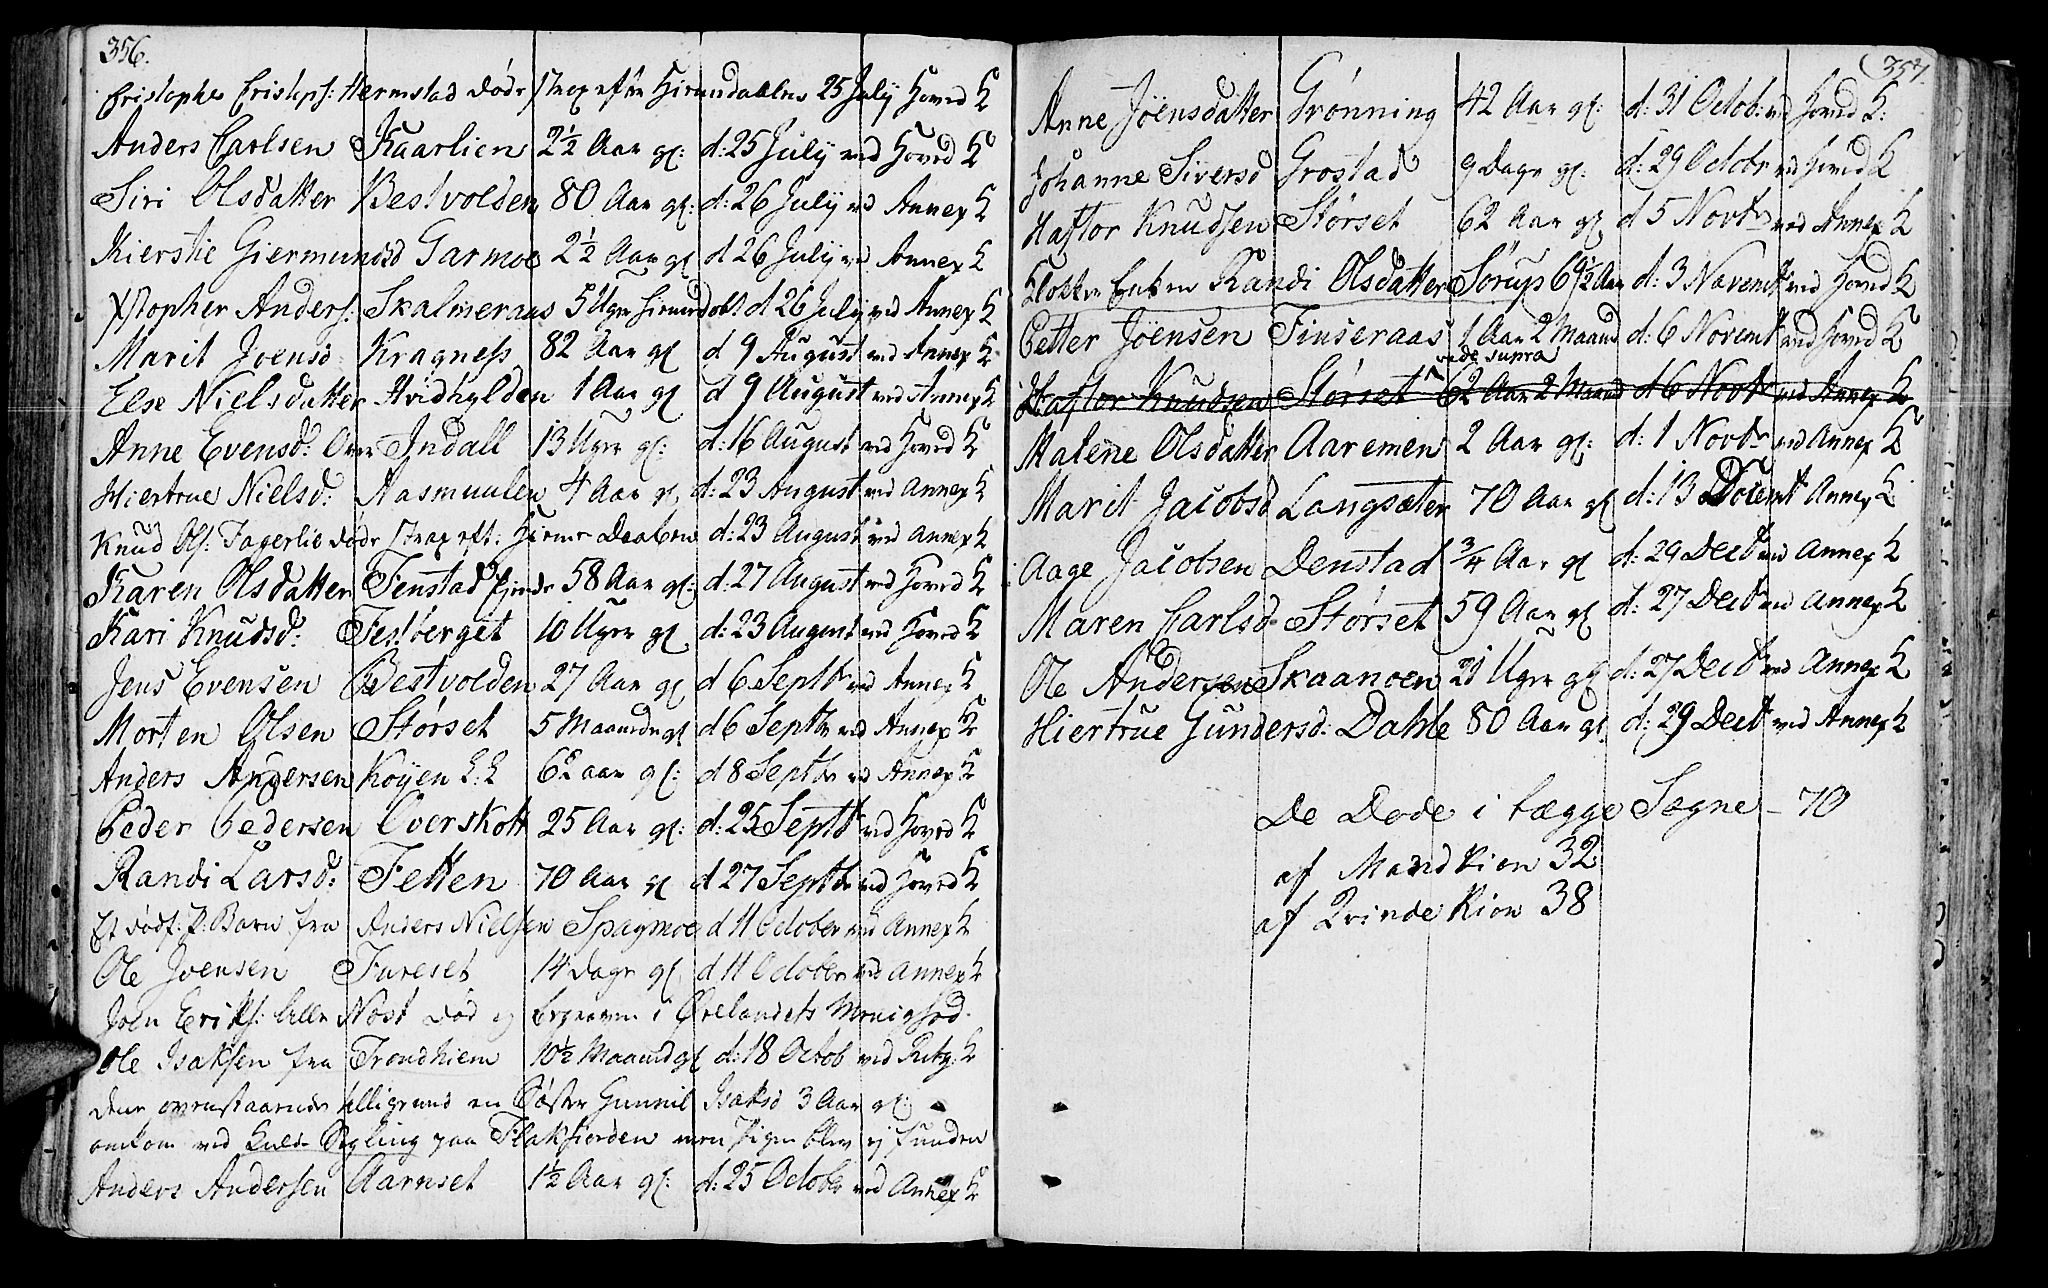 356.
Cristopher Cristophs: Hermstad døde strax efter Hiemdaaben 25 July Hoved K
Anders Carlsen Kaarlien 2½ Aar gl: d: 25 July ved Hoved K
Siri Olsdatter Bestvolden 80 Aar gl: d: 26 July ved Annex K
Kierstie Giermundsd Garmoe 2½ Aar gl d 26 July ved Annex K
Xstopher Anders: Skalmeraas 5 Uger hiemdøbt d 26 July ved Annex K
Marit Joensd: Kragness 82 Aar gl d 9 August ved Annex K
Else Nielsdatter Hvidhylden 1 Aar gl d 9 August ved Annex K
Anne Evensd: Over Indall 13 Uger gl: d: 16 August ved Hoved K
Hiertrue Nielsd: Aasmuulen 4 Aar gl. d: 23 August ved Annex K
Knud Ols: Fagerlie døde strax eft: Hieme Daaben d: 23 August ved Annex K
Karen Olsdatter Fenstad 58 Aar gl: d: 27 August ved Hoved K
Kari Knudsd: Testberget 10 Uger gl d: 23 August ved Hoved K
Jens Evensen Bestvolden 27 Aar gl d 6 Septbr ved Annex K
Morten Olsen Størset 5 Maaneder gl d 6 Septbr ved Annex K
Anders Andersen Køyen 62 aar gl: d 8 Septbr ved Annex K
Peder Pedersen Overskott 25 Aar gl: d: 25 Septbr ved Hoved K
Randi Larsd: Fetten 70 Aar gl d 27 Septbr ved Hoved K
Et dødf: P: Barn fra Anders Nielsen Spagmoe d 11 October ved Annex K
Ole Joensen Fureset 14 dage gl d 11 October ved Annex K
Joen Eriks: lille Nøst død og begraven i Ørelandets Menighed.
Ole Isaksen fra Trondhiem 10½ Maaned gl d: 18 Octob ved Retz: K
denne ovenstaaende tilligemed en Søster Gunnil Isaksd 3 Aar gl:
omkom ved Kuld Seyling paa Flakfiorden men Pigen blev ej funden
Anders Andersen Aarnset 1½ Aar gl: d: 25 October ved Annex K
357.
Anne Jøensdatter Grønning 42 Aar gl: d: 31 Octob: ved Hoved K:
Johanne Siversd Grostad 9 Dage gl: d: 29 Octobr ved Hoved K
Haftor Knudsen Størset 62 Aar gl d 5 Novbr ved Annex K
Klokker Enken Randi Olsdatter Sørup 69½ Aar d: 3 Novembr ved Hoved K
Petter Jøensen Finseraas 1 Aar 2 Maaned d: 6 Novembr ved Hoved K
vide supra
Haftor Knudsen Størset 62 Aar 2 Maaned d 6 Novbr ved Annex K
Malene Olsdatter Aaremen 2 Aar gl: d: 1 Novbr ved Annex K
Marit Jacobsd Langsæter 70 Aar gl d: 13 Decembr Annex K
Aage Jacobsen Denstad ¾ Aar gl d: 29 Decbr ved Annex K
Maren Carlsd Størset 59 Aar gl d: 27 Decbr ved Annex K
Ole Andersen Skaanoen 21 Uger gl d: 27 Decbr ved Annex K
Hiertrue Gundersd: Dahle 80 Aar gl d: 29 Decbr ved Annex K
De Døde i begge Sogne - 70
af Mandkion 32
af Qvinde Kion 38